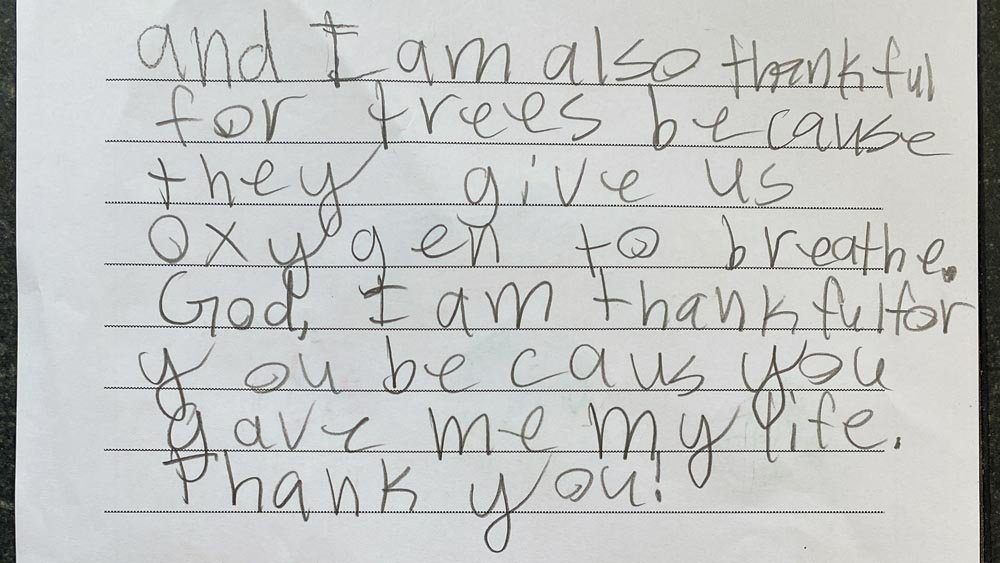 and I am also thankful
for trees because
they give us
oxygen to breathe.
God, I am thankful for
you becaus you
gave me my life.
Thank you!